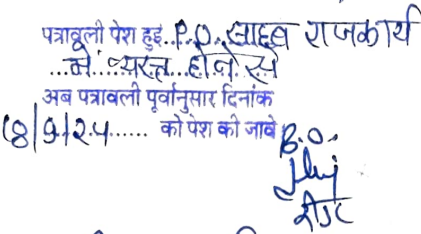 पत्रावली पेश हुई. P.O. साहब राजकार्य
में व्यस्त होने से
अब पत्रावली पूर्वानुसार दिनांक
18/9/24...... को पेश की जावे
B.O.